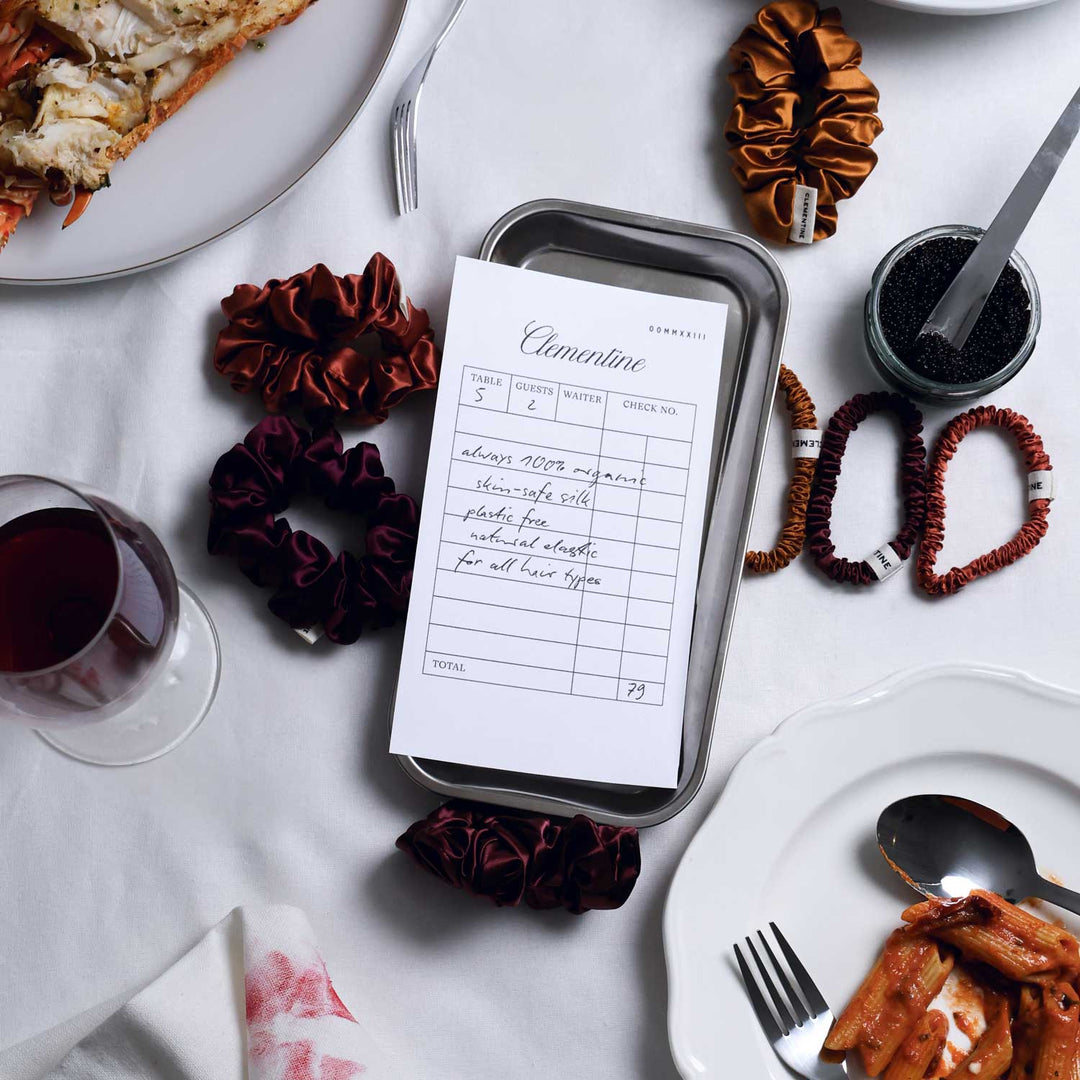 CLEMENTINE
OOMMXXIII
Clementine
TABLE GUESTS WAITER CHECK NO.
5 2
always 100% organic
skin-safe silk
plastic free
natural elastic
for all hair types
TOTAL
79
CLEMEN
INE
INE